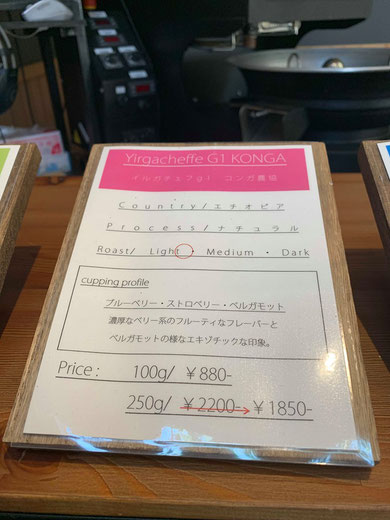 Yirgacheffe G1 KONGA
イルガチェフg1 コンガ農協
Country/エチオピア
Process/ナチュラル
Roast/ Light ・ Medium ・ Dark
cupping profile
ブルーベリー・ストロベリー・ベルガモット
濃厚なベリー系のフルーティなフレーバーと
ベルガモットの様なエキゾチックな印象。
Price : 100g/ ¥880-
250g/ ¥2200-→¥1850-